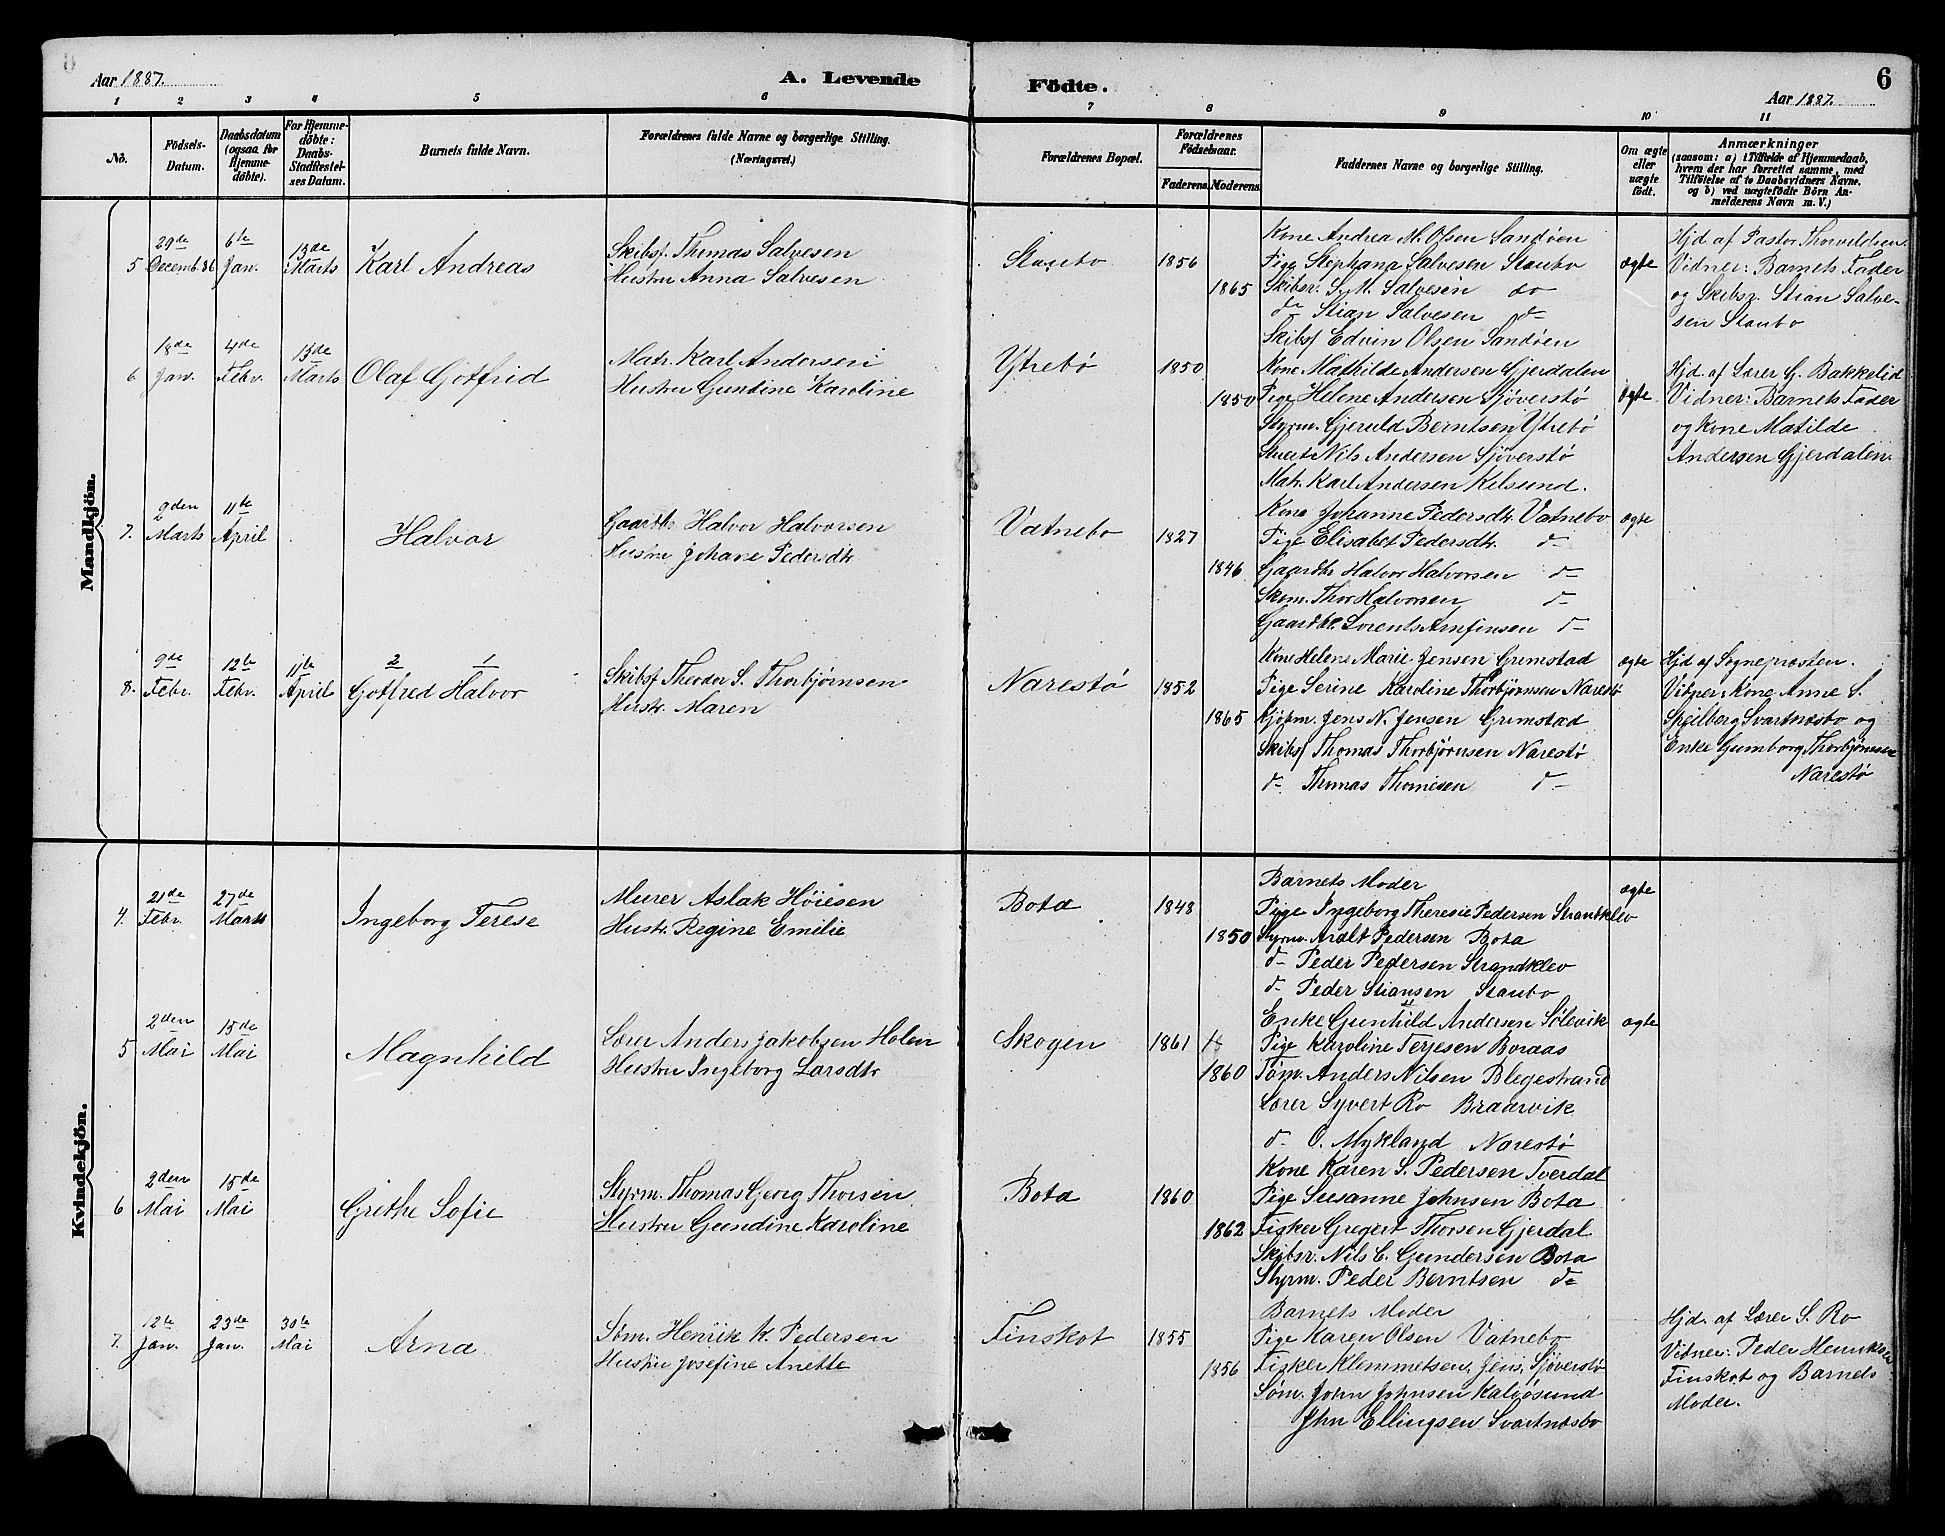 Aar 1887.
A. Levende Födte.
6
Aar 1887.
1 2 3 4 5 6 7 8 9 10 11
No.
Födsels-Datum.
Daabsdatum (ogsaa for Hjemme-döbte).
For Hjemme-döbte: Daabs-Stadfæstelses Datum.
Barnets fulde Navn.
Forældrenes fulde Navne og borgerlige Stilling. (Næringsvei.)
Forældrenes Bopæl.
Forældrenes Födselsaar.
Faderens. Moderens.
Faddernes Navne og borgerlige Stilling.
Om ægte eller uægte födt.
Anmærkninger
(saasom: a) i Tilfælde af Hjemmedaab,
hvem der har forrettet samme, med
Tilföielse af to Daabsvidners Navne.
og b) ved uægtefödte Börn An-
melderens Navn m. V.)
Mandkjön.
5 29de Decemb. 86 6te Jan. 13de Marts Karl Andreas
Skibsf. Thomas Salvesen
Hustru Anna Salvesen
Staubo 1856 1865
Kone Andrea M. Olsen Sandøen
Pige Stephana Salvesen Staubo
Skibsr. S. M. Salvesen do
d– Stian Salvesen d–
Skibsf Edvin Olsen Sandøen
ægte
Hjd af Pastor Thorvildsen.
Vidner: Barnets Fader
og Skibsr. Stian Salve-
sen Staubo
6 18de Jan. 4de Febr. 13de Marts Olaf Gotfrid
Matr. Karl Andersen
Hustru Gundine Karoline
Ytrebø 1850 1850
Kone Mathilde Andersen Gjerdalen
Pige Helene Andersen Sjøverstø
Styrm. Gjeruld Berntsen Ytrebø
Stuert Nils Andersen Sjøverstø
Matr. Karl Andersen Kelsund.
ægte
Hjd. af Lærer G. Bakkelid
Vidner: Barnets Fader
og Kone Matilde
Andersen Gjerdalen.
7. 9den Marts 11te April Halvor
Gaardbr Halvor Halvorsen
Hustru Johane Pedersdtr.
Vatnebo 1827 1846
Kone Johanne Pedersdtr. Vatnebo
Pige Elisabet Pedersdtr. d–
Gaardbr Halvor Halvorsen d–
Skom. Thor Halvorsen d–
Gaardbr. Lorents Arnfinsen d–
ægte
8. 9de Febr. 12te Febr. 11te April 2 1 Gotfred Halvor
Skibsf Theodor S. Thorbjørnsen
Hustr. Maren
Narestø 1852 1865
Kone Helene Marie Jensen Grimstad
Pige Serine Karoline Thorbjørnsen Narestø
Kjøpm. Jens N. Jensen Grimstad
Skibsf Thomas Thorbjørnsen Narestø
d– Thomas Thomesen d–
ægte
Hjd af Sognepræsten.
Vidner: Kone Anne S.
Skeilberg Svartnæsbo og
Enke Gumborg Thorbjørnsen
Narestø
Kvindekjön.
4. 21de Febr. 27de Marts Ingeborg Terese
Murer Aslak Høiesen
Hustr. Regine Emilie
Bota 1848 1850
Barnets Moder
Pige Ingeborg Theresie Pedersen Strandklev
Styrm. Aralt Pedersen Bota
d– Peder Pedersen Strandklev
d– Peder Stiansen Staubo
ægte
5 2den Mai 15de Mai Magnhild
Lærer Anders Jakobsen Holen
Hustru Ingeborg Larsdtr
Skogen 1861 1860
Enke Gunhild Andersen Sølevik
Pige Karoline Terjesen Boraas
Tøm. Anders Nilsen Blegestrand
Lærer Syvert Ro Braarvik
d– O. Mykland Narestø
ægte
6 2den Mai 15de Mai Grethe Sofie
Styrm. Thomas Georg Thorsen
Hustru Gundine Karoline
Bota 1860 1862
Kone Karen S. Pedersen Tverdal
Pige Susanne Johnsen Bota
Fisker Gregert Thorsen Gjerdal
Skibsr. Nils C. Gundersen Bota
Styrm. Peder Berntsen d–
7. 12te Jan. 23de Jan. 30te Mai Arna
Søm. Henrik K. Pedersen
Hustru Josefine Anette
Finskot 1855 1856
Barnets Moder
Pige Karen Olsen Vatnebo
Fisker Klemmetsen, Jens, Sjøverstø
Søm. John Johnsen Kalvøsund
John Ellingsen Svartnæsbo
Hjd. af Lærer S. Ro
Vidner: Peder Henriksen
Finskot og Barnets
Moder.